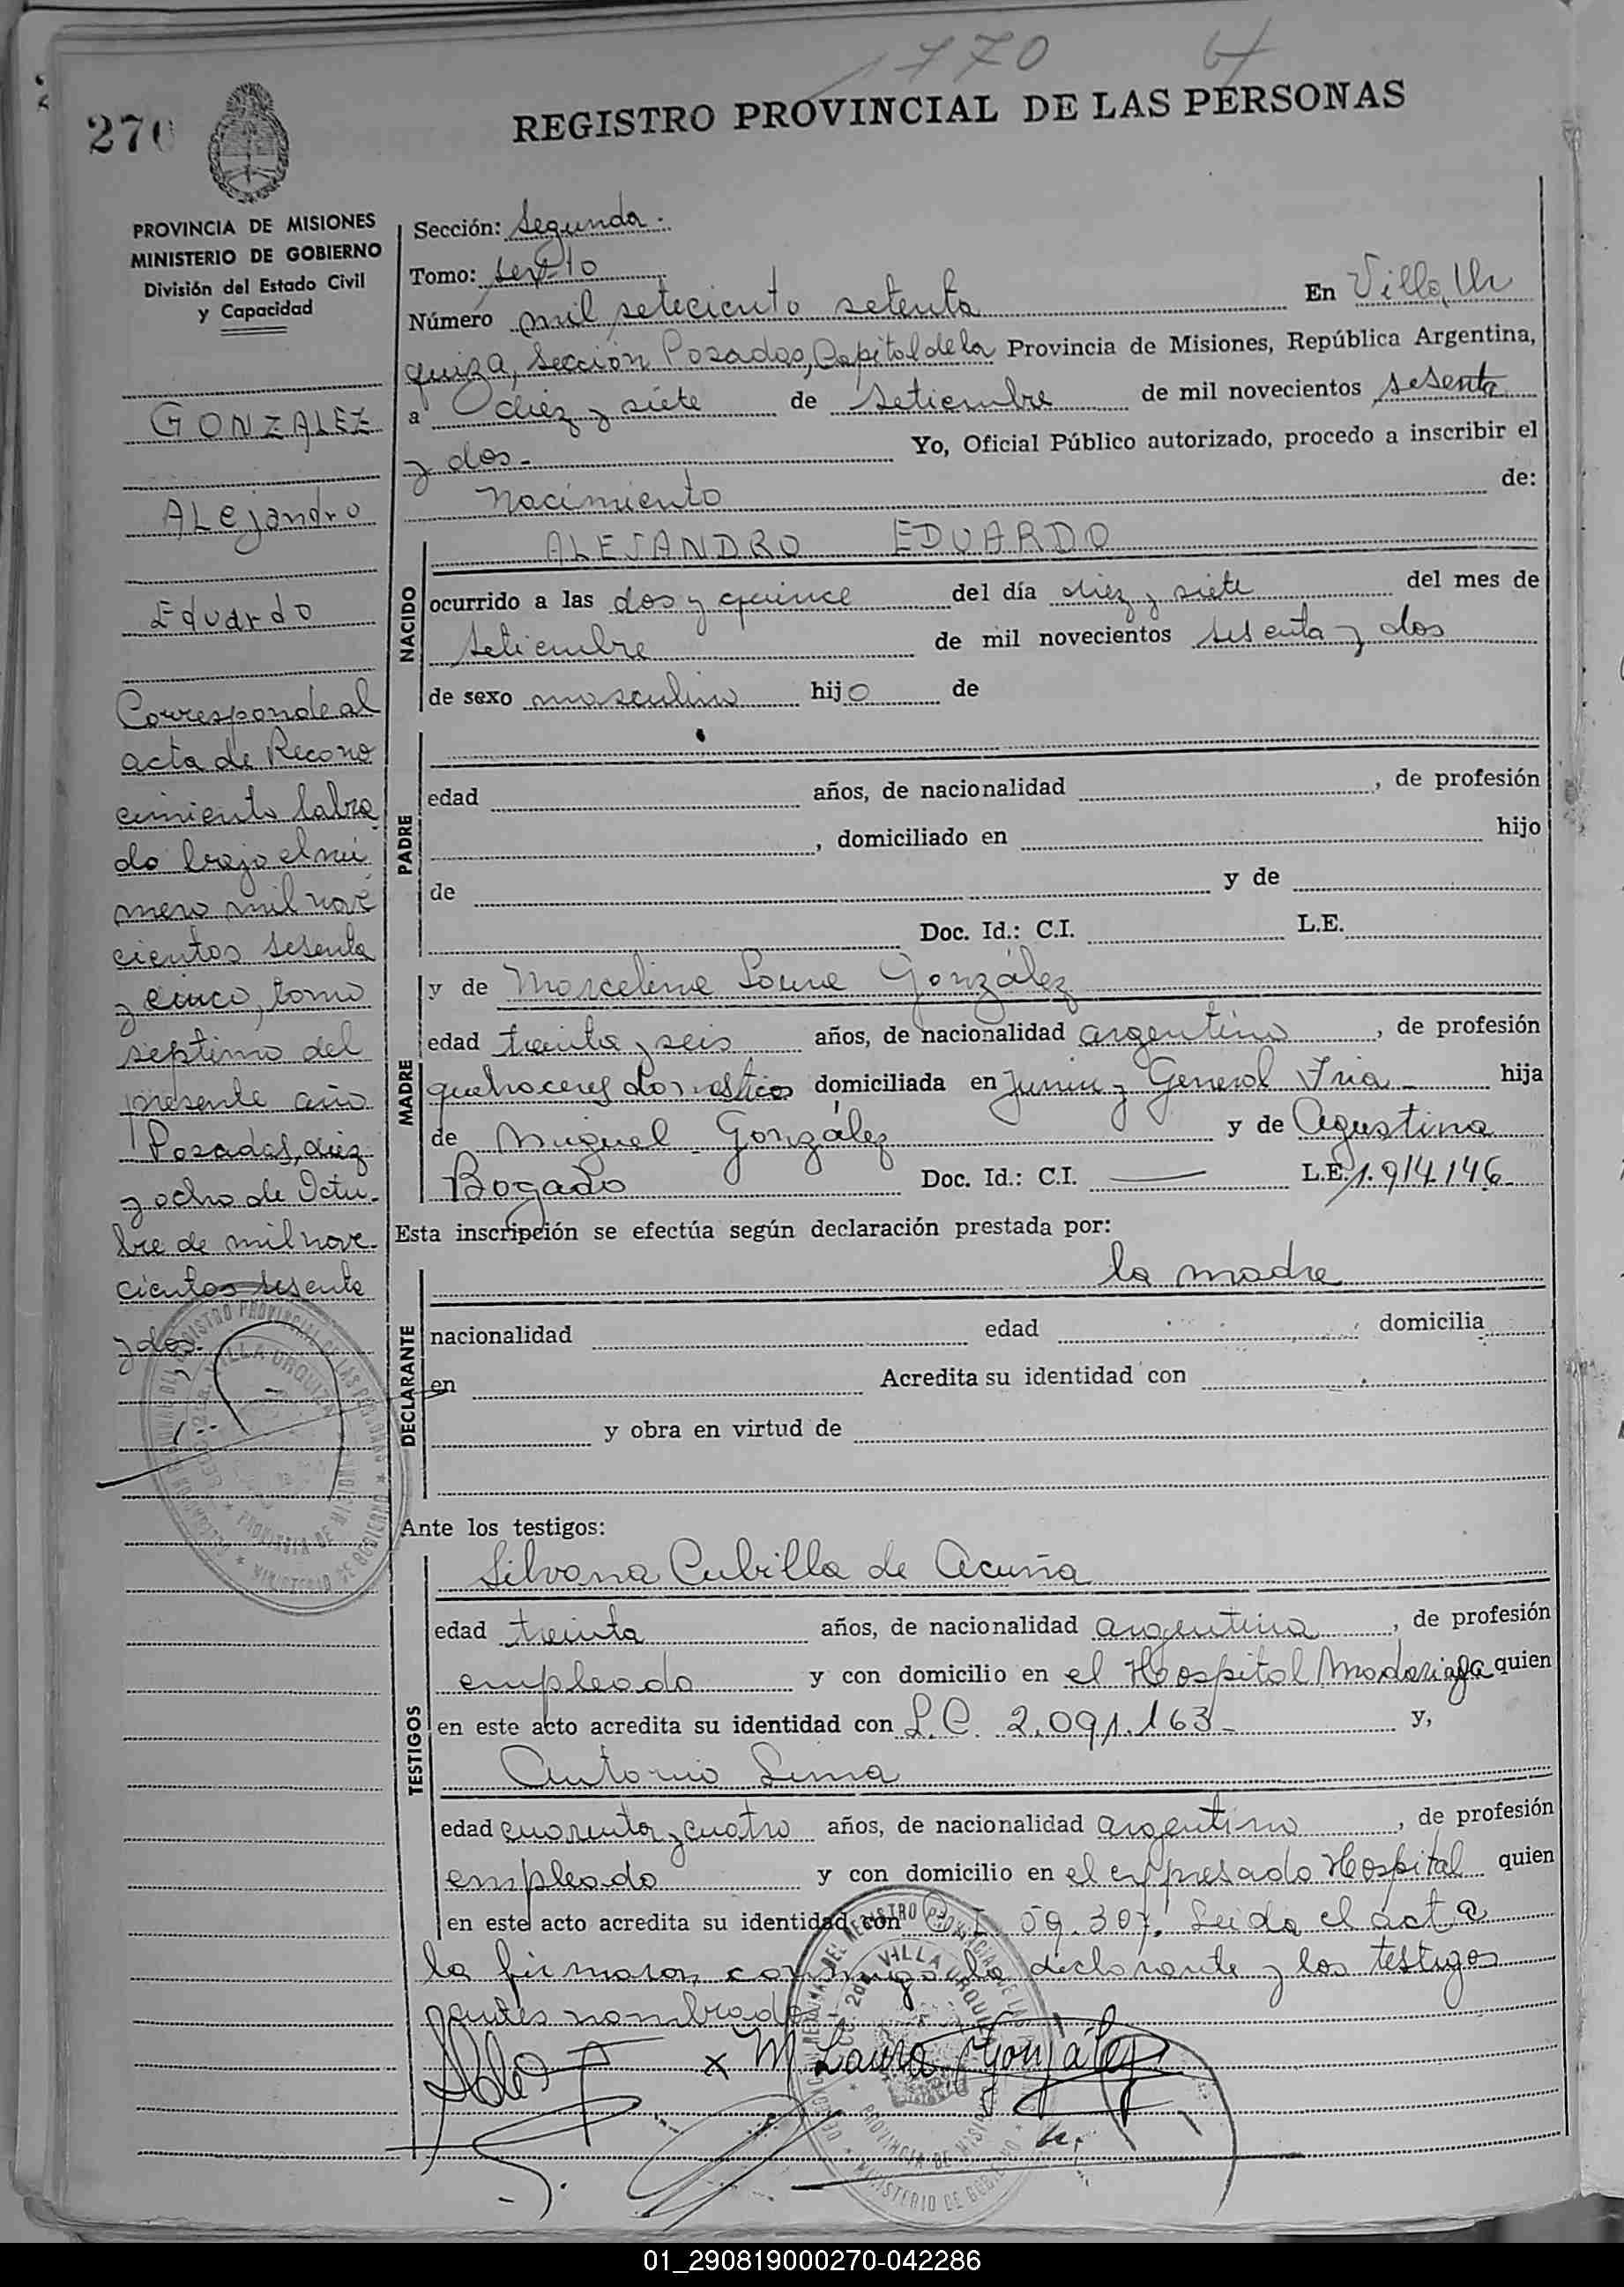 1770
270
REGISTRO PROVINCIAL DE LAS PERSONAS
PROVINCIA DE MISIONES
MINISTERIO DE GOBIERNO
División del Estado Civil
y Capacidad
GONZALEZ
ALejandro
Eduardo
Corresponde al
acta de Recono
cimiento labra
do bajo el nú
mero mil nove
cientos sesenta
y cinco, tomo
septimo del
presente año
Posadas, diez
y ocho de Octu-
bre de mil nove-
cientos sesenta
y dos.-
Sección: Segunda.
Tomo: sexto
Número mil setecientos setenta En Villa Ur
quiza, Sección Posadas, Capital de la Provincia de Misiones, República Argentina,
a diez y siete de Setiembre de mil novecientos sesenta
y dos.- Yo, Oficial Público autorizado, procedo a inscribir el
Nacimiento de:
NACIDO
ALEJANDRO EDUARDO
ocurrido a las dos y quince del día diez y siete del mes de
Setiembre de mil novecientos sesenta y dos
de sexo masculino hijo de
PADRE
edad años, de nacionalidad , de profesión
, domiciliado en hijo
de y de
Doc. Id.: C.I. L.E.
MADRE
y de Marcelina González
edad treinta y seis años, de nacionalidad argentina , de profesión
quehaceres domesticos domiciliada en Junin y General Fria - hija
de Miguel González y de Agustina
Bogado Doc. Id.: C.I. — L.E. 1.914.146
Esta inscripción se efectúa según declaración prestada por:
DECLARANTE
la madre
nacionalidad edad domicilia
en Acredita su identidad con
y obra en virtud de
Ante los testigos:
TESTIGOS
Silvana Cubilla de Acuña
edad treinta años, de nacionalidad argentina , de profesión
empleada y con domicilio en el Hospital Madariaga quien
en este acto acredita su identidad con L.C. 2.091.163- y,
Antonio Lima
edad cuarenta y cuatro años, de nacionalidad argentino , de profesión
empleado y con domicilio en el expresado Hospital quien
en este acto acredita su identidad con C.I. 59.307. Leida el acta
la firmaron conmigo la declarante y los testigos
antes nombrados
x M Laura González
01_290819000270-042286